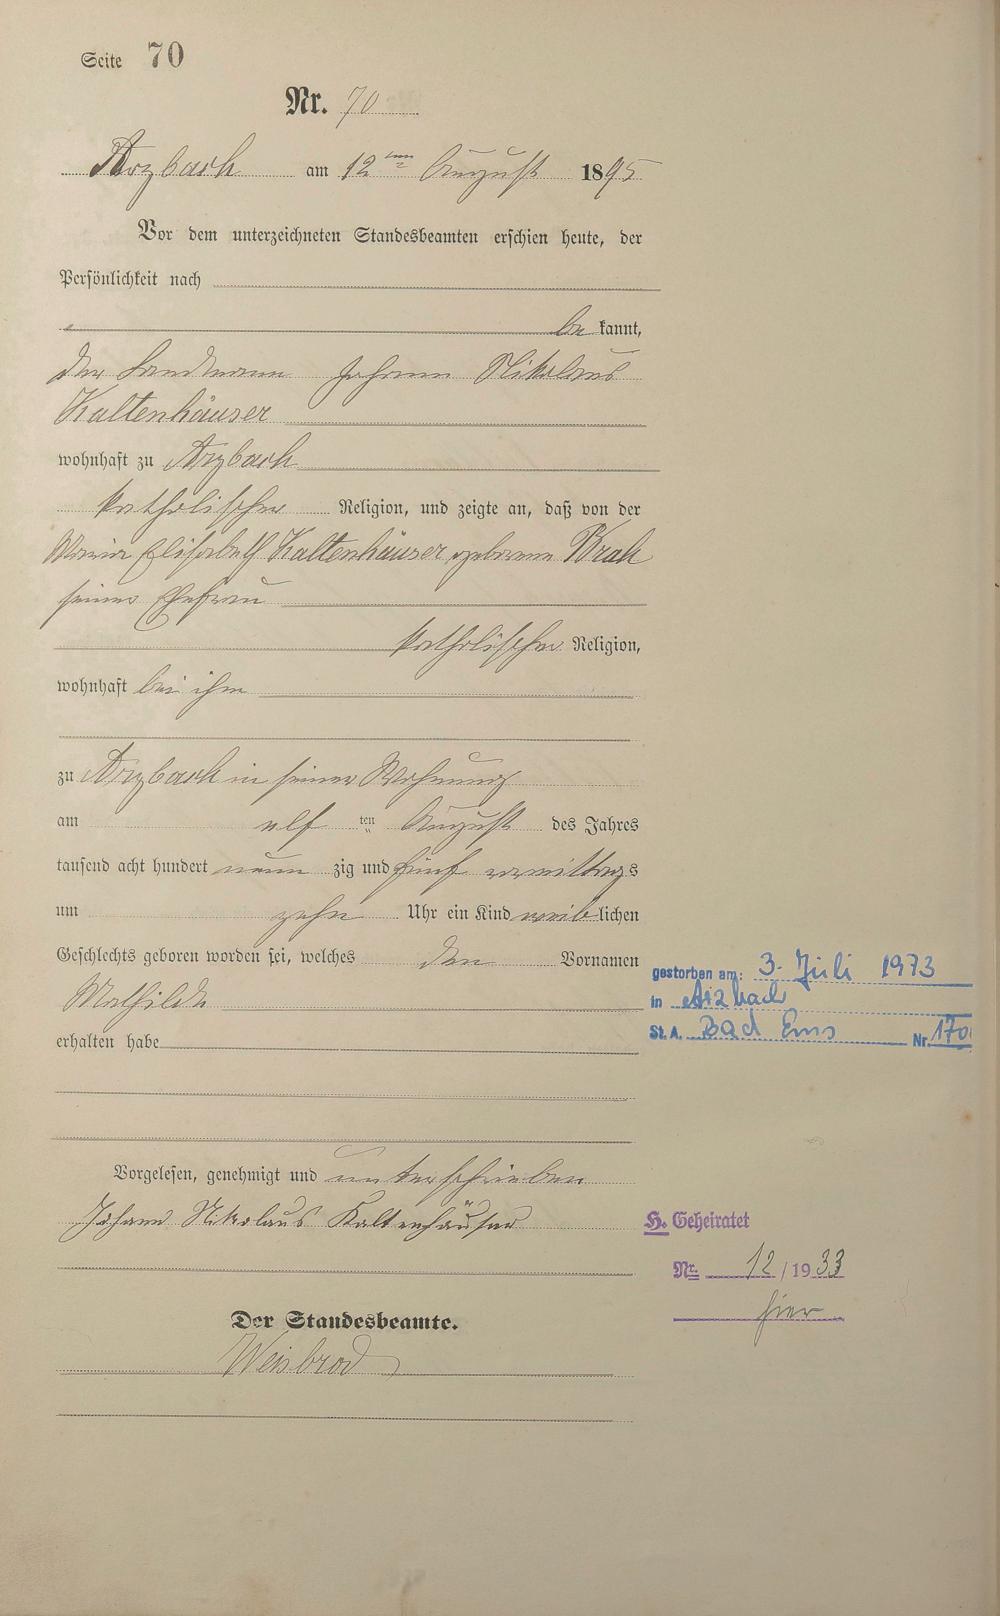 Seite 70
Nr. 70
Arzbach am 12ten August 1895
Vor dem unterzeichneten Standesbeamten erschien heute, der
Persönlichkeit nach
be kannt,
der Landmann Johann Nikolaus
Kaltenhäuser
wohnhaft zu Arzbach
katholischer Religion, und zeigte an, daß von der
Maria Elisabeth Kaltenhäuser geborene
seiner Ehefrau
katholischer Religion,
wohnhaft bei ihm
zu Arzbach in seiner Wohnung
am elf ten August des Jahres
tausend acht hundert neun zig und fünf vormittags
um zehn Uhr ein Kind weib lichen
Geschlechts geboren worden sei, welches den Vornamen
Mathilde
erhalten habe
gestorben am: 3. Juli 1973
in Arzbach
St. A. Bad Ems Nr. 170
Vorgelesen, genehmigt und unterschrieben
Johann Nikolaus Kaltenhäuser
H. Geheiratet
Nr. 12/1933
hier
Der Standesbeamte.
Weisbrod